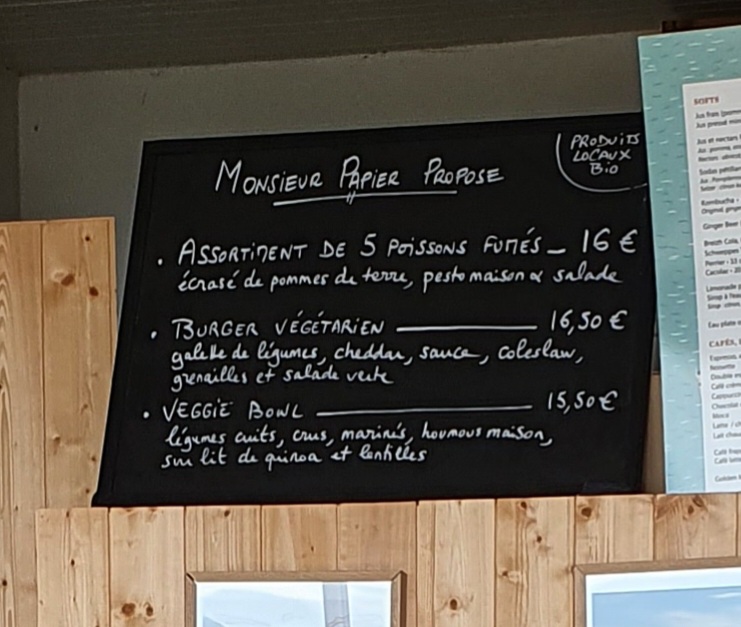 PRODUITS
LOCAUX
BiO
MONSIEUR PAPIER PROPOSE
• ASSORTIMENT DE 5 POISSONS FUMÉS — 16 €
écrasé de pommes de terre, pesto maison & salade
• BURGER VÉGÉTARIEN — 16,50 €
galette de légumes, cheddar, sauce, coleslaw,
grenailles et salade verte
• VEGGIE BOWL — 15,50 €
légumes cuits, crus, marinés, houmous maison,
sur lit de quinoa et lentilles
SOFTS
Ginger Beer
Eau plate
CAFÉS,